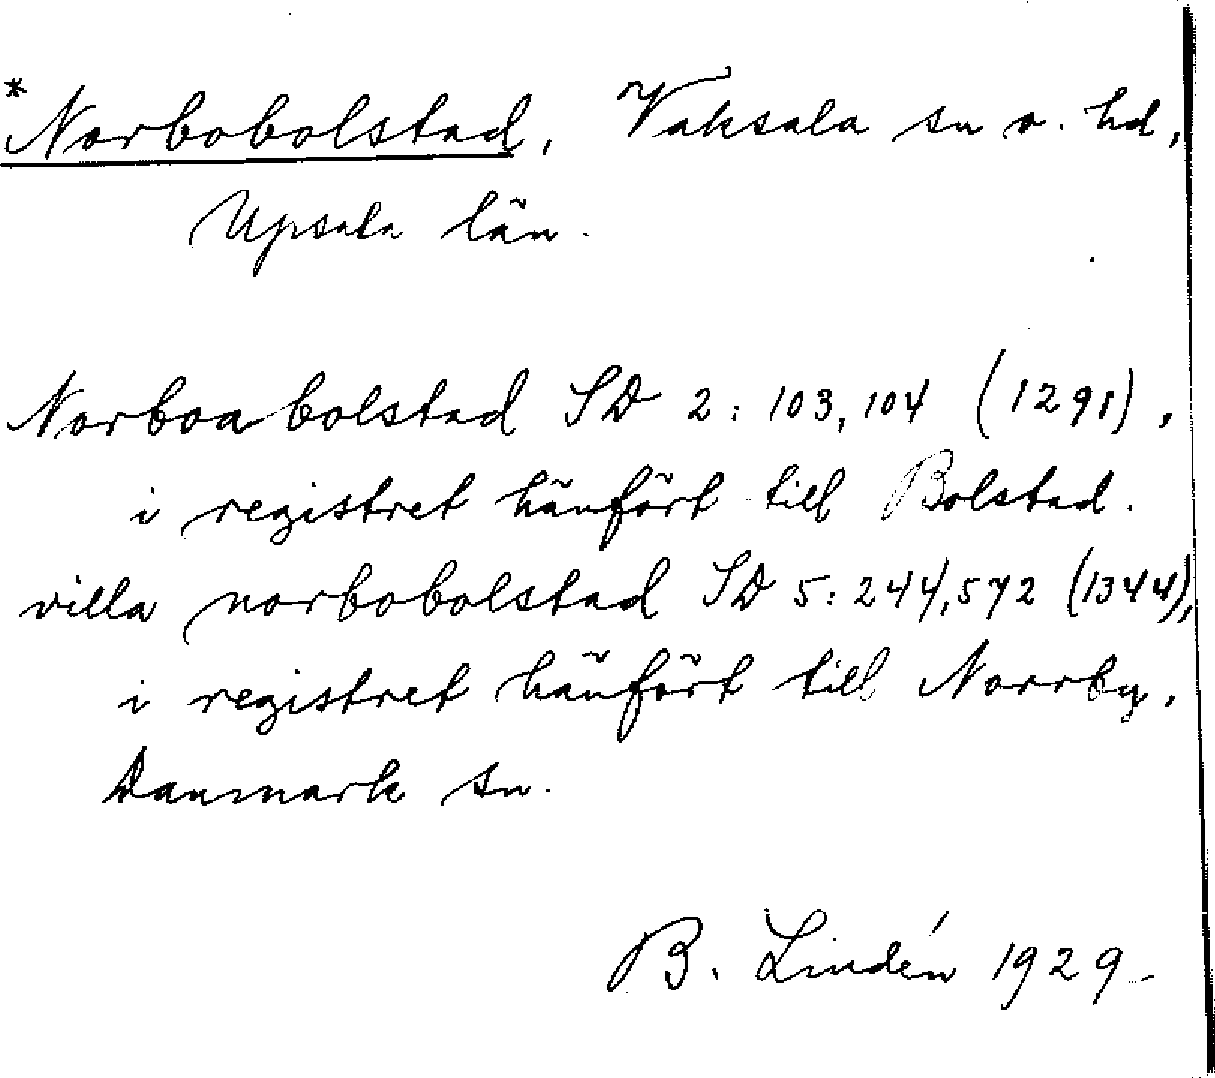 *Norbobolstad, Vaksala sn o. hd,
Upsala län.
Norboabolstad SD 2: 103, 104 (1291),
i registret hänfört till Bolstad.
villa norbobolstad SD 5: 244, 572 (1344),
i registret hänfört till Norrby,
Danmark sn.
B. Lindén 1929.